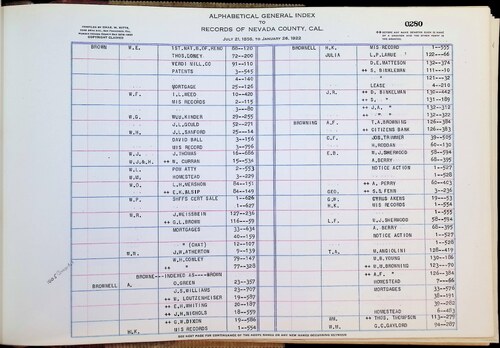 ALPHABETICAL GENERAL INDEX
TO
RECORDS OF NEVADA COUNTY, CAL.
0280
COPYRIGHT CLAIMED
BROWN W.E. 1ST.NAT.B.OF.RENO 88—120
THOS. CONEY 72—200
VERDI MILL CO 91—110
PATENTS 3—545
4—140
MORTGAGE 25—126
W.F. I.L. WEED 10—420
MIS RECORDS 2—115
3—80
W.G. WM.J. KINDER 29—255
W.H. J.L. GOULD 52—271
W.H. J.L. SANFORD 25—14
DAVID BALL 3—156
MIS RECORD 3—756
W.J. J. THOMAS 16—686
W.J.&H. ++ W. CURRAN 15—534
W.L. POW ATTY 2—553
W.M. HOMESTEAD 3—229
W.O. L.H. MERSHON 84—151
++ E.K. BLSIP 84—149
W.P. SHFFS CERT SALE 1—626
1—627
W.R. J. WEISBEIN 127—236
++ G.L. BROWN 116—59
MORTGAGES 33—634
40—159
++ (CHAT) 12—107
W.S. J.W. ATHERTON 9—139
W.H. COWLEY 79—147
++ 77—328
BROWNE----INDEXED AS----BROWN
BROWNELL A. O. GREEN 23—357
J.S. WILLIAMS 23—707
++ W. LOUTZENHEISER 19—587
++ E.H. WHITING 20—187
++ J.M. NICHOLS 18—559
++ G.W. DIXON 19—586
W.K. MIS RECORDS 1—554
BROWNELL H.K. MIS RECORD 1—555
JULIA L.P. LARUE 122—66
G.E. MATTESON 132—374
++ S. BINKLEMAN 111—10
++ 121—32
LEASE 4—210
J.R. ++ D. BINKELMAN 130—442
++ S. ++ 131—189
++ J.A. ++ 132—312
++ ++ 132—322
BROWNING A.F. T.A. BROWNING 126—384
++ CITIZENS BANK 126—383
C.F. JOS. TRIMMER 39—505
H. RODDAN 60—130
E.B. W.J. SHERWOOD 58—594
A. BERRY 68—395
NOTICE ACTION 1—527
1—528
++ A. PERRY 60—403
GEO. ++ S.S. FERN 3—236
G.W. CYRUS AKENS 19—53
W.K. MIS RECORDS 1—554
1—555
L.F. W.J. SHERWOOD 58—594
A. BERRY 68—395
NOTICE ACTION 1—527
1—528
T.A. M. ANGIOLINI 128—419
W.B. YOUNG 130—186
++ W.H. BROWNING 123—70
++ A.F. ++ 126—384
HOMESTEAD 7—66
MORTGAGES 33—576
38—191
39—282
HOMESTEAD 8—483
WM. ++ THOS. THOMPSON 113—279
W.W. G.C. GAYLORD 94—287
SEE LAST PAGE FOR CONTINUANCE OF THE ABOVE NAMES OR ANY NEW NAMES BEGINNING BETWEEN